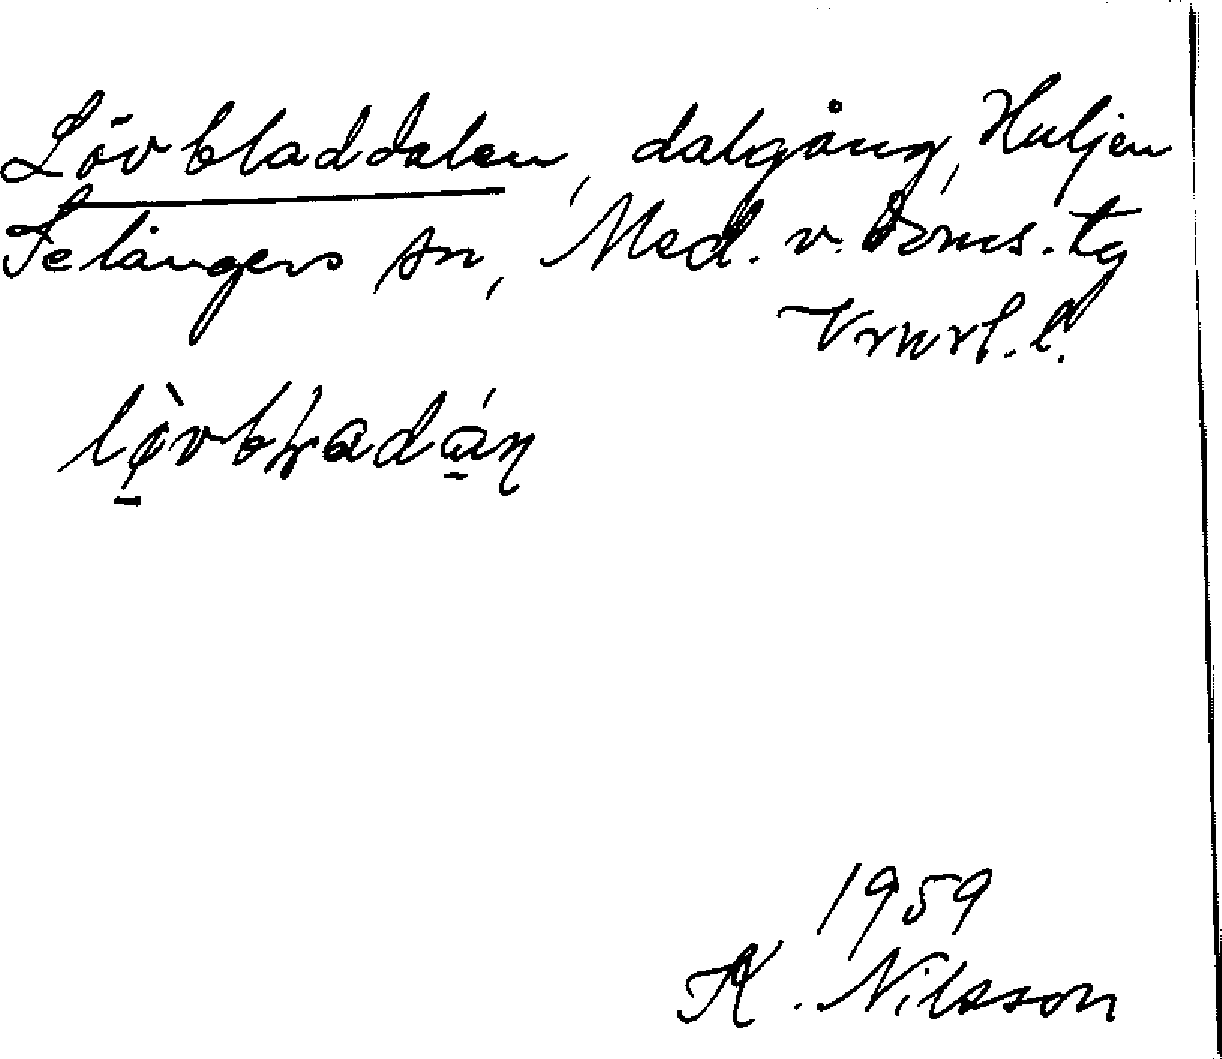 Lövbladdalen, dalgång, Huljen
Selångers sn, Med. v. doms. tg
Vrnrl. l.
lø̀vbɽadán
1959
K. Nilsson